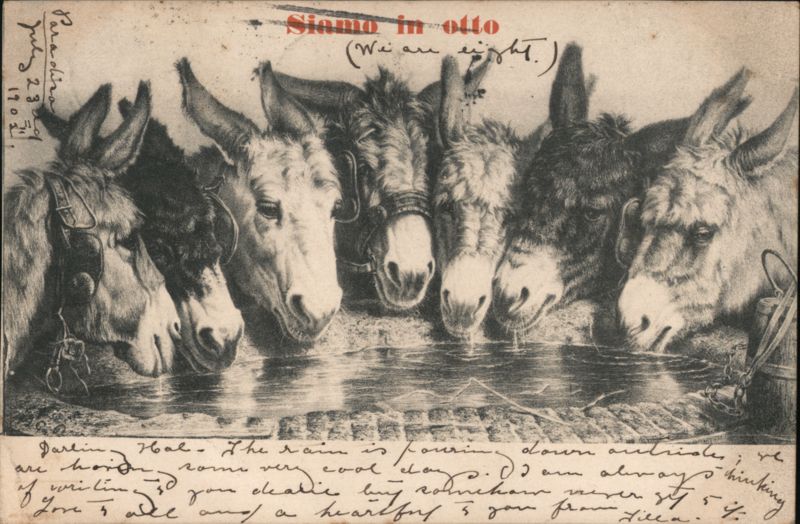 Siamo in otto
(We are eight.)
Paradiso
July 23rd
1902.
Darling Hal - The rain is pouring down outside; we
are having some very cool days. I am always thinking
of writing to you dearie but somehow never get to it
Love to all and a heartful to you from